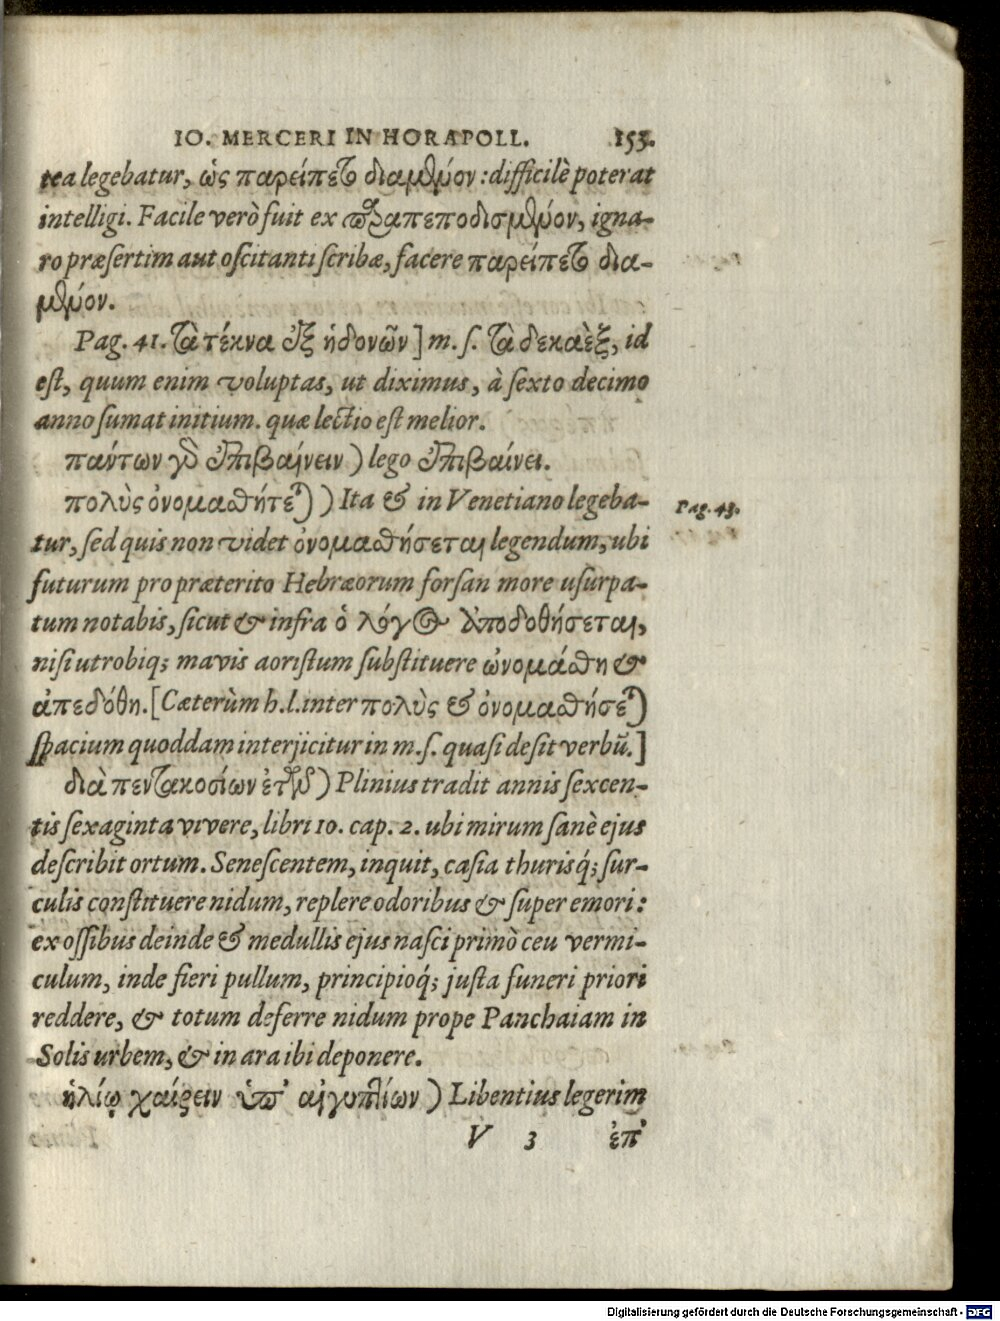 IO. MERCERI IN HORAPOLL. 153.
tea legebatur, ὡς παρείπετο διαμένον: difficilè poterat
intelligi. Facile verò fuit ex παραπεποδισμένον, igna-
ro præsertim aut oscitanti scribæ, facere παρείπετο δια-
μένον.
Pag. 41. τὰ τέκνα ἐξ ἡδονῶν] m. s. τὰ δεκαὲξ, id
est, quum enim voluptas, ut diximus, à sexto decimo
anno sumat initium. quæ lectio est melior.
πάντων γὸ ἐπιβαίνειν ) lego ἐπιβαίνει.
πολὺς ὀνομασθήτεται ) Ita & in Venetiano legeba-
Pag. 43.
tur, sed quis non videt ὀνομασθήσεται legendum, ubi
futurum pro præterito Hebræorum forsan more usurpa-
tum notabis, sicut & infra ὁ λόγος ἀποδοθήσεται,
nisi utrobiq; mavis aoristum substituere ὠνομάσθη &
ἀπεδόθη. [Cæterùm h. l. inter πολὺς & ὀνομασθήσεται)
spacium quoddam interjicitur in m. s. quasi desit verbũ.]
διὰ πεντακοσίων ἐτῶν ) Plinius tradit annis sexcen-
tis sexaginta vivere, libri 10. cap. 2. ubi mirum sanè ejus
describit ortum. Senescentem, inquit, casia thurisq́; sur-
culis constituere nidum, replere odoribus & super emori:
ex ossibus deinde & medullis ejus nasci primò ceu vermi-
culum, inde fieri pullum, principioq́; justa funeri priori
reddere, & totum deferre nidum prope Panchaiam in
Solis urbem, & in ara ibi deponere.
ἡλίῳ χαίρειν ὑπ' αἰγυπτίων ) Libentius legerim
V 3 ἐπ'
Digitalisierung gefördert durch die Deutsche Forschungsgemeinschaft - DFG